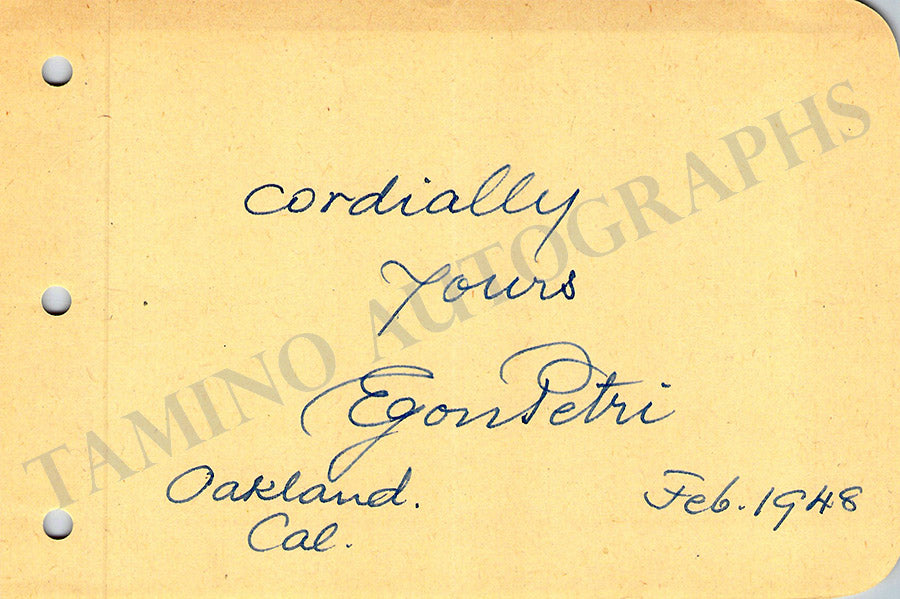 cordially
yours
Egon Petri
Oakland.
Cal.
Feb. 1948
TAMINO AUTOGRAPHS